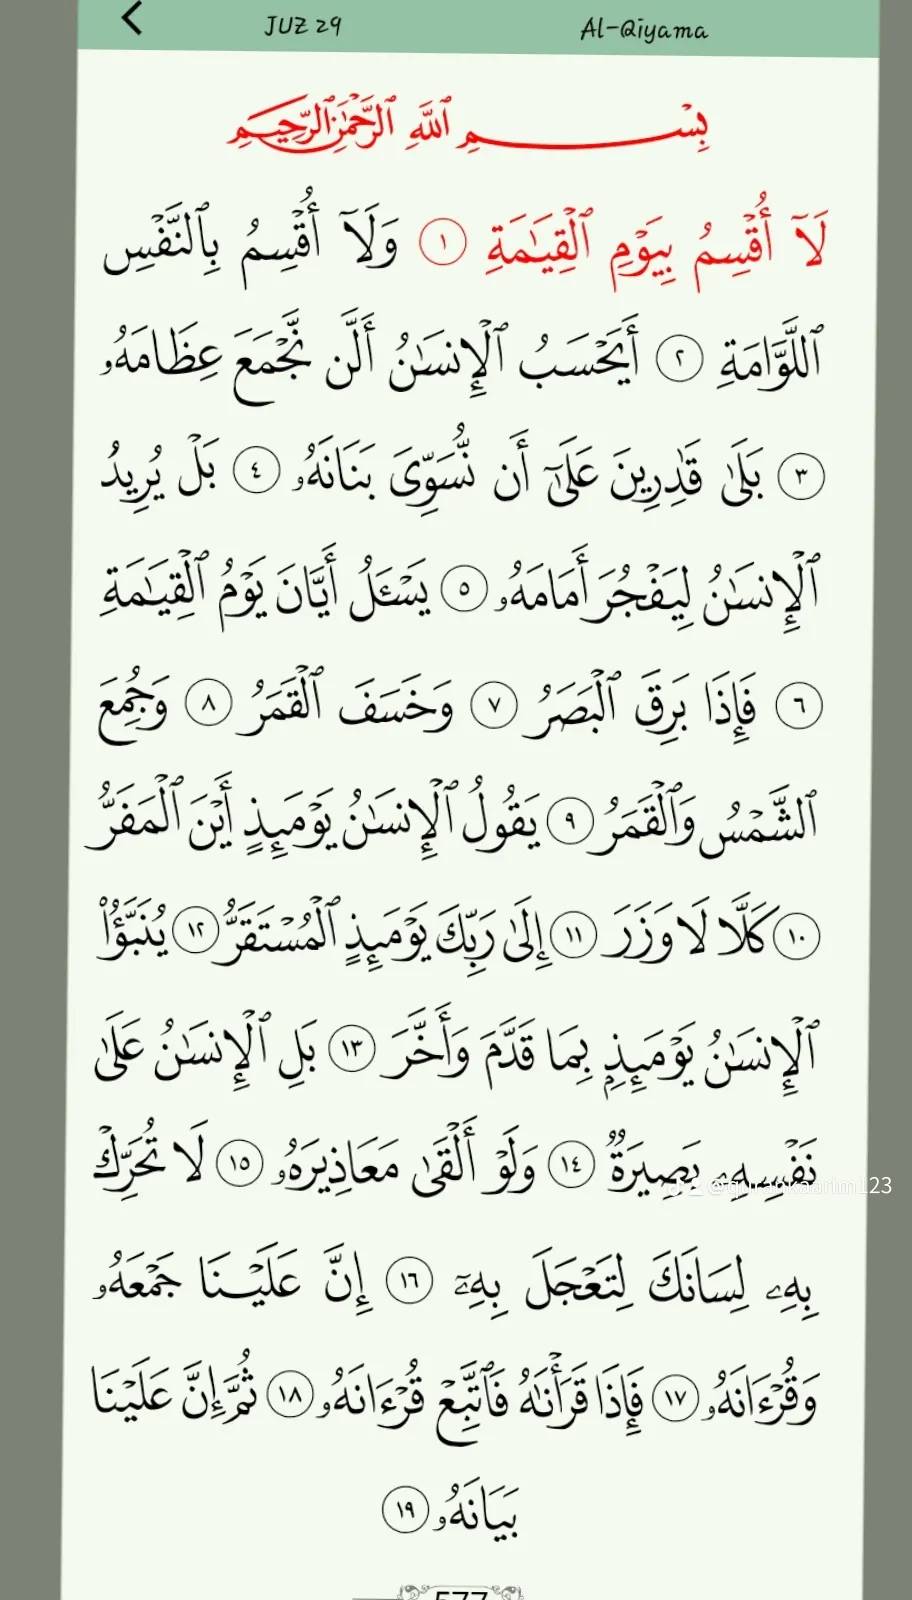 JUZ 29 Al-Qiyama
بِسْمِ ٱللَّهِ ٱلرَّحْمَٰنِ ٱلرَّحِيمِ
لَآ أُقْسِمُ بِيَوْمِ ٱلْقِيَٰمَةِ ١ وَلَآ أُقْسِمُ بِٱلنَّفْسِ
ٱللَّوَّامَةِ ٢ أَيَحْسَبُ ٱلْإِنسَٰنُ أَلَّن نَّجْمَعَ عِظَامَهُۥ
٣ بَلَىٰ قَٰدِرِينَ عَلَىٰٓ أَن نُّسَوِّىَ بَنَانَهُۥ ٤ بَلْ يُرِيدُ
ٱلْإِنسَٰنُ لِيَفْجُرَ أَمَامَهُۥ ٥ يَسْـَٔلُ أَيَّانَ يَوْمُ ٱلْقِيَٰمَةِ
٦ فَإِذَا بَرِقَ ٱلْبَصَرُ ٧ وَخَسَفَ ٱلْقَمَرُ ٨ وَجُمِعَ
ٱلشَّمْسُ وَٱلْقَمَرُ ٩ يَقُولُ ٱلْإِنسَٰنُ يَوْمَئِذٍ أَيْنَ ٱلْمَفَرُّ
١٠ كَلَّا لَا وَزَرَ ١١ إِلَىٰ رَبِّكَ يَوْمَئِذٍ ٱلْمُسْتَقَرُّ ١٢ يُنَبَّؤُا۟
ٱلْإِنسَٰنُ يَوْمَئِذٍۭ بِمَا قَدَّمَ وَأَخَّرَ ١٣ بَلِ ٱلْإِنسَٰنُ عَلَىٰ
نَفْسِهِۦ بَصِيرَةٌ ١٤ وَلَوْ أَلْقَىٰ مَعَاذِيرَهُۥ ١٥ لَا تُحَرِّكْ
بِهِۦ لِسَانَكَ لِتَعْجَلَ بِهِۦٓ ١٦ إِنَّ عَلَيْنَا جَمْعَهُۥ
وَقُرْءَانَهُۥ ١٧ فَإِذَا قَرَأْنَٰهُ فَٱتَّبِعْ قُرْءَانَهُۥ ١٨ ثُمَّ إِنَّ عَلَيْنَا
بَيَانَهُۥ ١٩
577